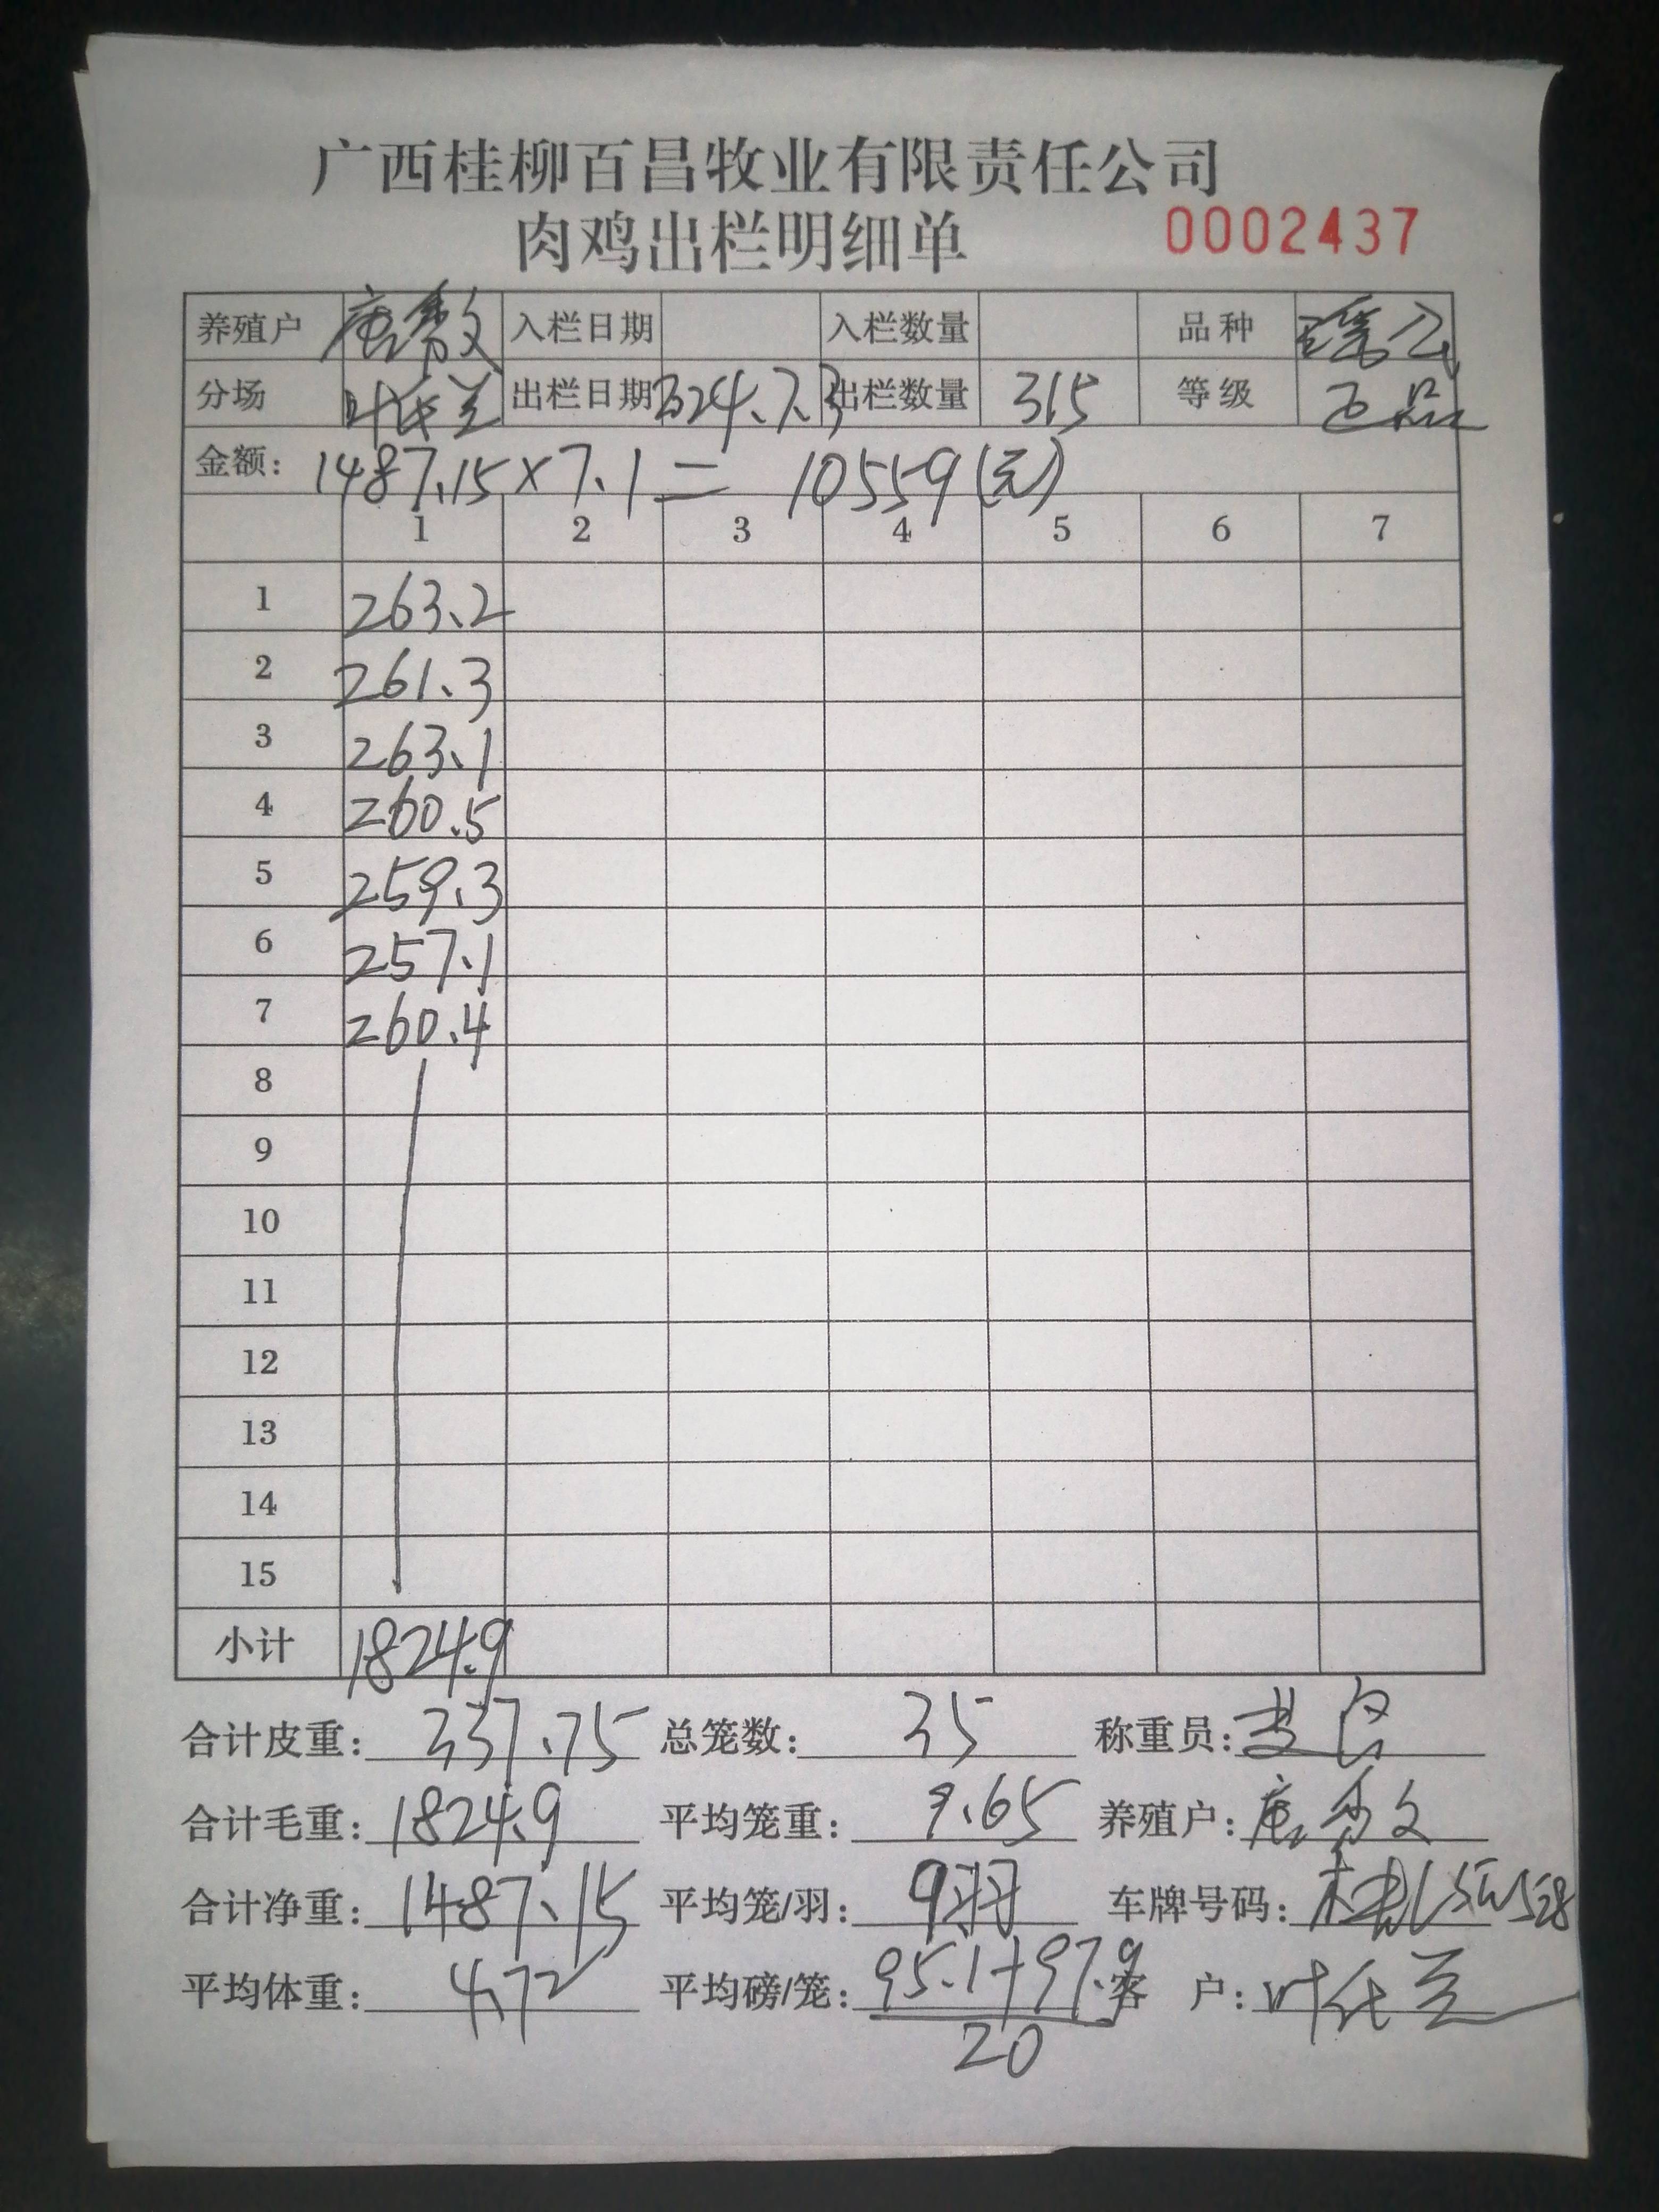 广西桂柳百昌牧业有限责任公司
肉鸡出栏明细单 0002437
养殖户 唐秀文 入栏日期 入栏数量 品种
分场 叶任兰 出栏日期 2024.7.3 出栏数量 315 等级 正品
金额: 1487.15×7.1= 10559(元)
1 2 3 4 5 6 7
1 263.2
2 261.3
3 263.1
4 260.5
5 259.3
6 257.1
7 260.4
8
9
10
11
12
13
14
15
小计 1824.9
合计皮重: 337.75 总笼数: 35 称重员:
合计毛重: 1824.9 平均笼重: 9.65 养殖户: 唐秀文
合计净重: 1487.15 平均笼/羽: 9羽 车牌号码:
平均体重: 4.72 平均磅/笼: 95.1+97.9 客 户: 叶任兰
20